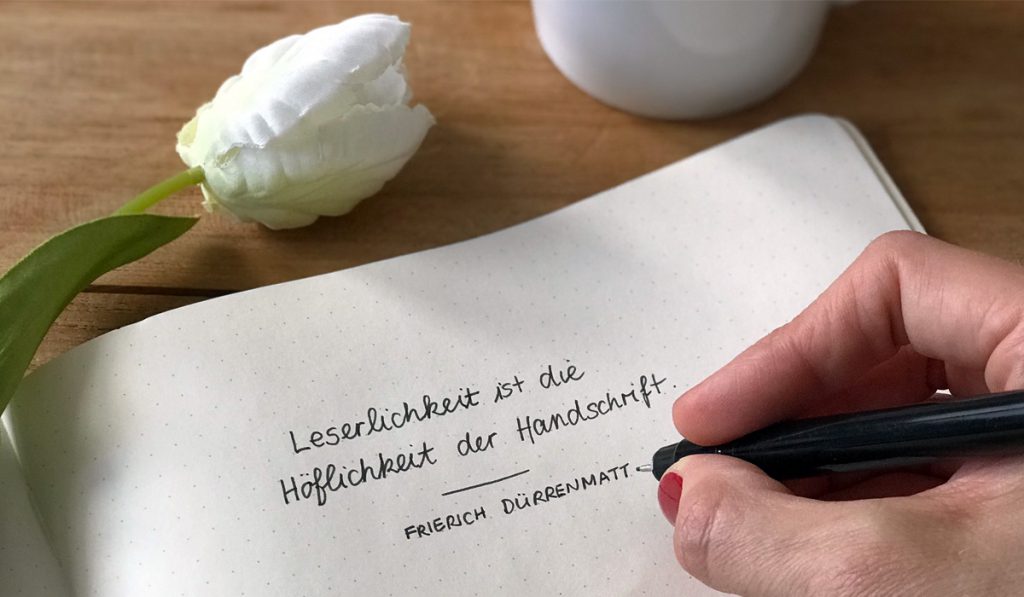 Leserlichkeit ist die
Höflichkeit der Handschrift.
FRIERICH DÜRRENMATT